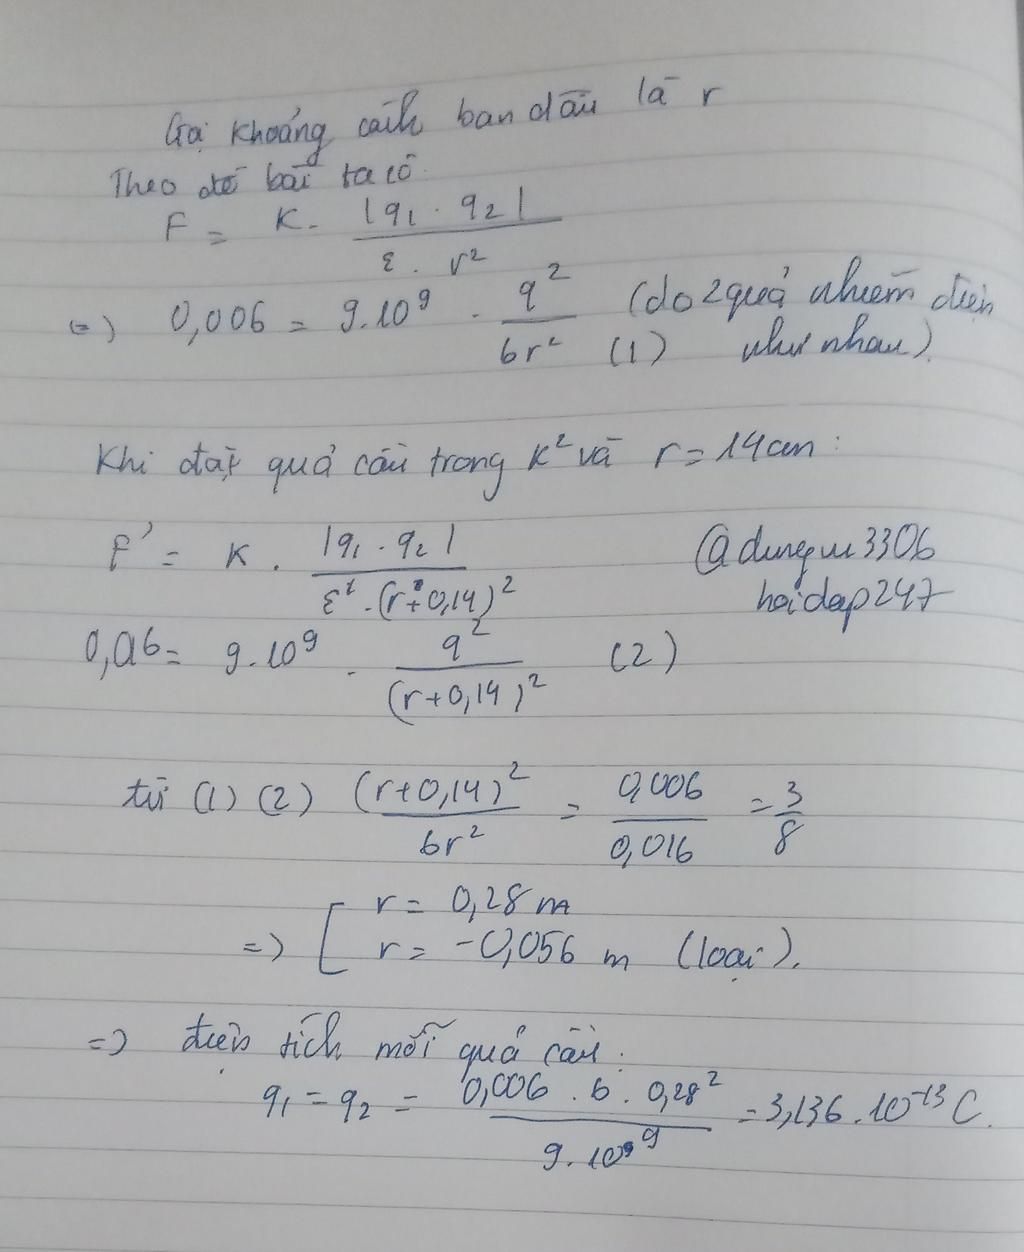 Gọi khoảng cách ban đầu là r
Theo đề bài ta có
F = K. |q1 . q2| / ε . r²
(=) 0,006 = 9.10⁹ . q² / 6r² (1) (do 2 quả nhiễm điện như nhau).
Khi đặt quả cầu trong k² và r = 14cm :
F' = K . |q1 . q2| / ε' . (r + 0,14)²
@dungvu3306
hoidap247
0,016 = 9.10⁹ . q² / (r+0,14)² (2)
từ (1) (2) (r+0,14)² / 6r² = 0,006 / 0,016 = 3/8
=) [ r = 0,28 m
r = -0,056 m (loại).
=) điện tích mỗi quả cầu :
q1 = q2 = 0,006 . 6 . 0,28² / 9.10⁹ = 3,136 . 10⁻¹³ C.